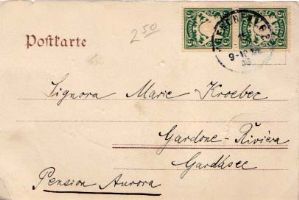 Postkarte
250
Signora Marie Kroeber
Gardone-Riviera
Gardasee
Pension Aurora